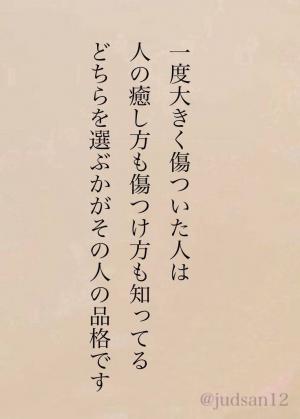 一度大きく傷ついた人は
人の癒し方も傷つけ方も知ってる
どちらを選ぶかがその人の品格です
@judsan12